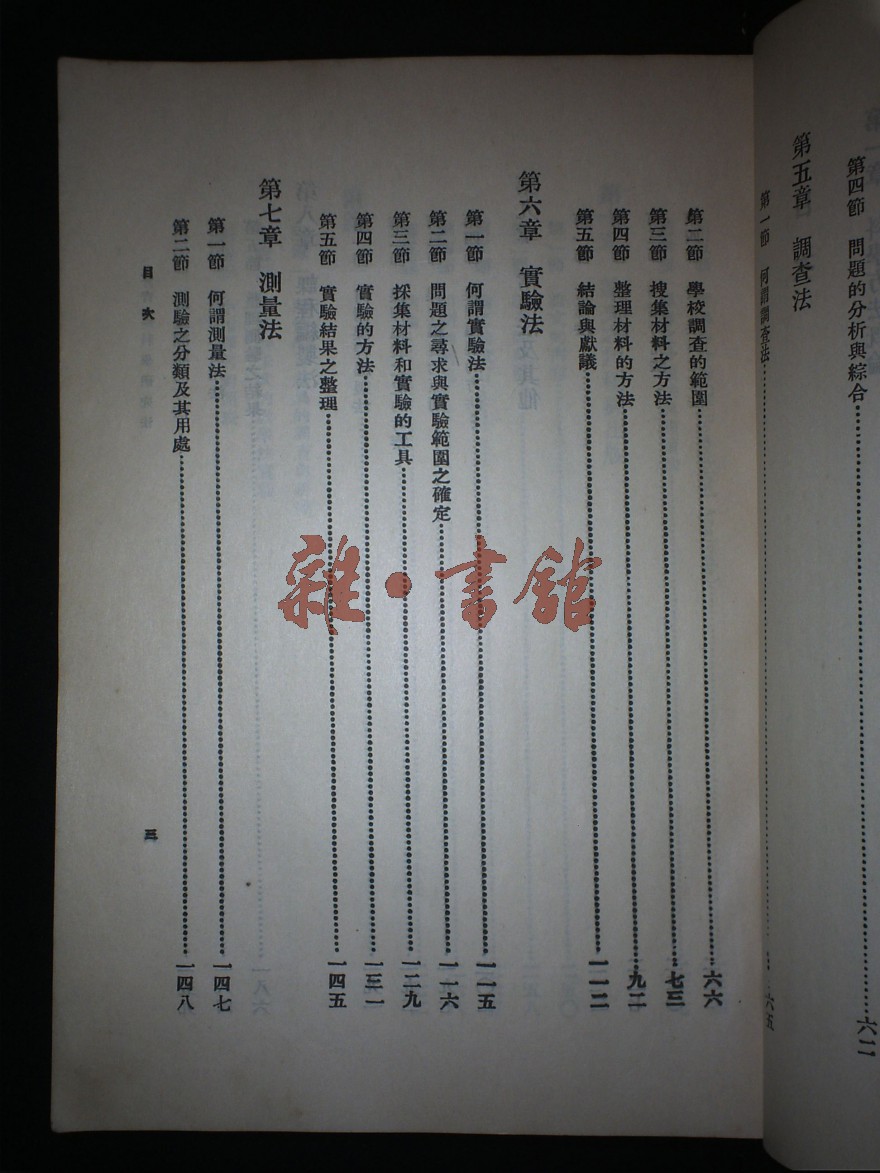 第四節 問題的分析與綜合……六二
第五章 調查法
第一節 何謂調查法……六五
第二節 學校調查的範圍……六六
第三節 搜集材料之方法……七三
第四節 整理材料的方法……九二
第五節 結論與獻議……一一二
第六章 實驗法
第一節 何謂實驗法……一一五
第二節 問題之尋求與實驗範圍之確定……一一六
第三節 採集材料和實驗的工具……一二九
第四節 實驗的方法……一三一
第五節 實驗結果之整理……一四五
第七章 測量法
第一節 何謂測量法……一四七
第二節 測驗之分類及其用處……一四八
目次
三
雜·書館